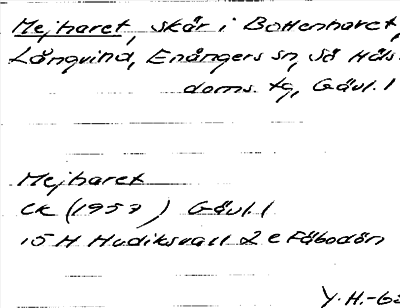 Mejharet, skär i Bottenhavet,
Långvind, Enångers sn, Sö Häls.
doms. tg, Gävl. l
Mejharet
EK (1957) Gävl. l
15 H Hudiksvall 2 e Fäbodön
Y.H.-62